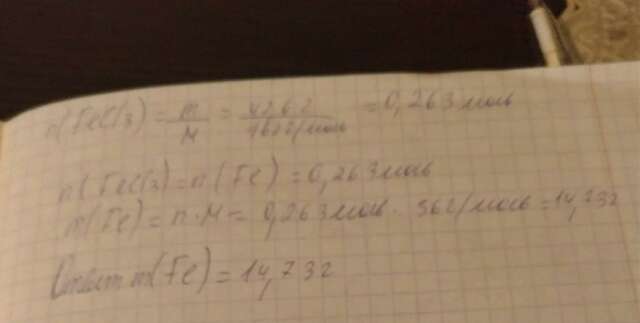 n(FeCl3) = m/M = 42,6 г/162 г/моль = 0,263 моль
n(FeCl3) = n(Fe) = 0,263 моль
m(Fe) = n·M = 0,263 моль · 56 г/моль = 14,73 г
Ответ m(Fe) = 14,73 г